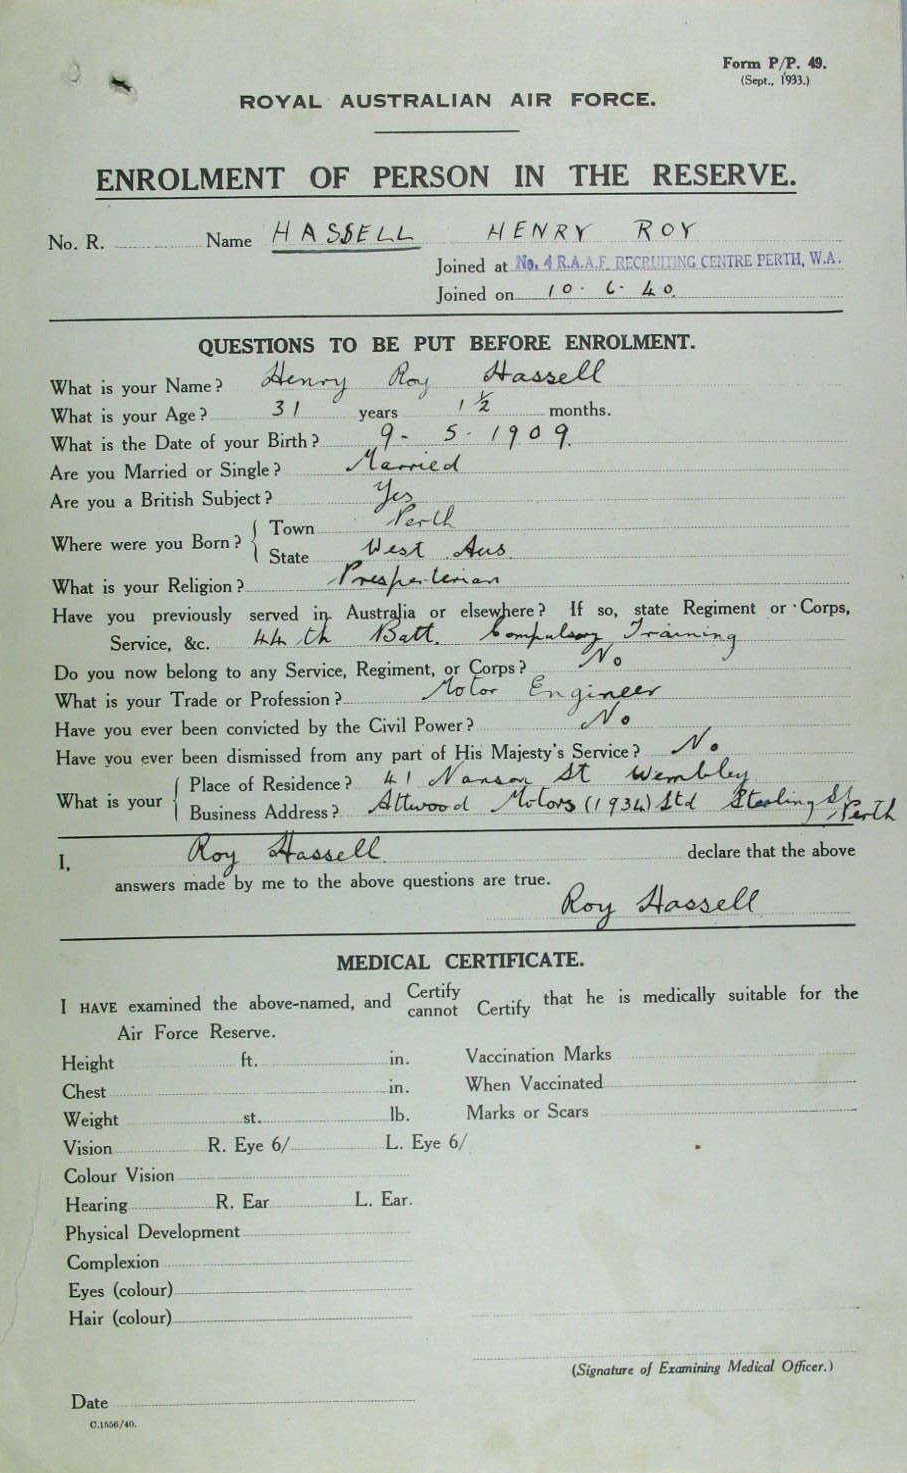 Form P/P. 49.
(Sept., 1933.)
ROYAL AUSTRALIAN AIR FORCE.
ENROLMENT OF PERSON IN THE RESERVE.
No. R. Name HASSELL HENRY ROY
Joined at No. 4 R.A.A.F. RECRUITING CENTRE PERTH, W.A.
Joined on 10. 6. 40.
QUESTIONS TO BE PUT BEFORE ENROLMENT.
What is your Name? Henry Roy Hassell
What is your Age? 31 years 1 ½ months.
What is the Date of your Birth? 9 - 5 - 1909.
Are you Married or Single? Married
Are you a British Subject? Yes
Where were you Born? { Town Perth
State West Aus
What is your Religion? Presperterian
Have you previously served in Australia or elsewhere? If so, state Regiment or Corps,
Service, &c. 44 th Batt. Compulsory Training
Do you now belong to any Service, Regiment, or Corps? No
What is your Trade or Profession? Motor Engineer
Have you ever been convicted by the Civil Power? No
Have you ever been dismissed from any part of His Majesty's Service? No
What is your { Place of Residence? 41 Nanson St Wembley
Business Address? Attwood Motors (1934) Ltd Stirling St Perth
I, Roy Hassell declare that the above
answers made by me to the above questions are true.
Roy Hassell
MEDICAL CERTIFICATE.
I HAVE examined the above-named, and Certify cannot Certify that he is medically suitable for the
Air Force Reserve.
Height ft. in. Vaccination Marks
Chest in. When Vaccinated
Weight st. lb. Marks or Scars
Vision R. Eye 6/ L. Eye 6/
Colour Vision
Hearing R. Ear L. Ear.
Physical Development
Complexion
Eyes (colour)
Hair (colour)
(Signature of Examining Medical Officer.)
Date
C.1556/40.